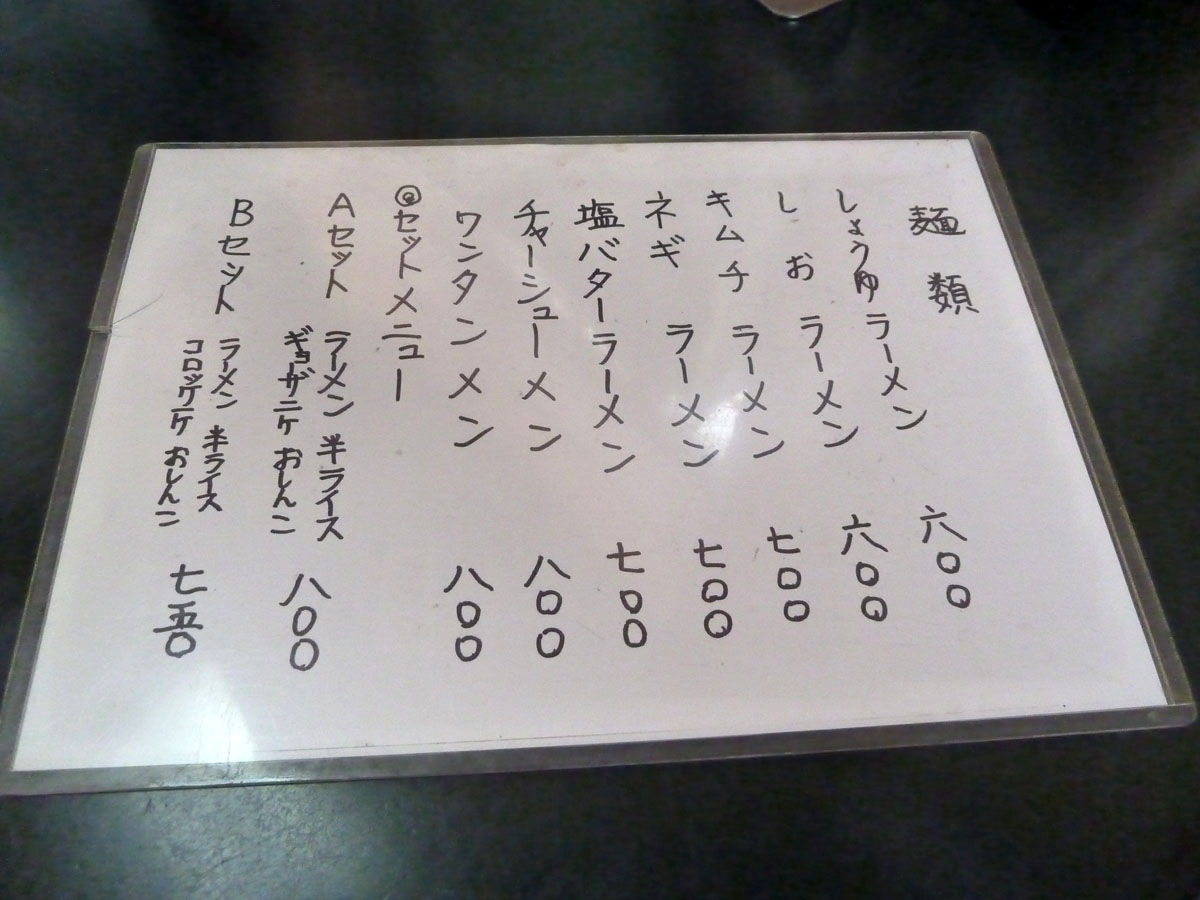 麺類
しょうゆラーメン 六〇〇
しおラーメン 六〇〇
キムチラーメン 七〇〇
ネギラーメン 七〇〇
塩バターラーメン 七〇〇
チャーシューメン 八〇〇
ワンタンメン 八〇〇
◎セットメニュー
Aセット ラーメン 半ライス
ギョーザ二ケ おしんこ 八〇〇
Bセット ラーメン 半ライス
コロッケ一ケ おしんこ 七五〇